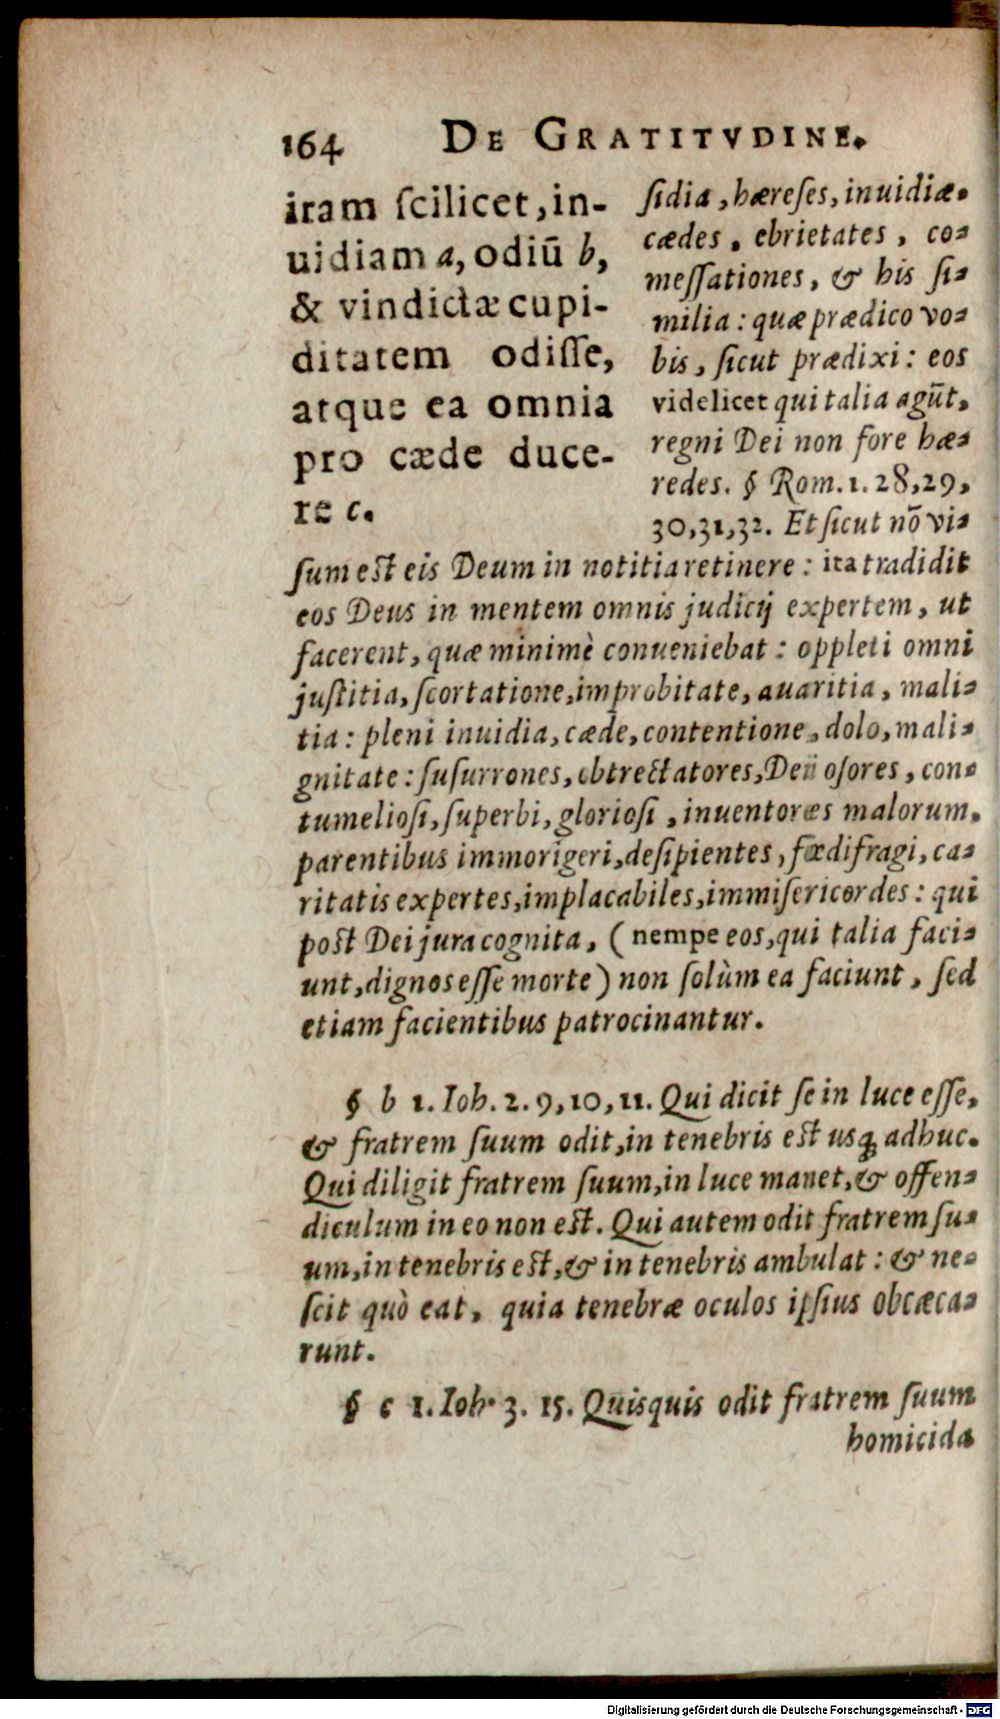 164 DE GRATITVDINE.
iram ſcilicet, in-
uidiam a, odiū b,
& vindictæ cupi-
ditatem odiſſe,
atque ea omnia
pro cæde duce-
re c.
ſidia, hæreſes, inuidiæ.
cædes, ebrietates, co-
meſſationes, & his ſi-
milia: quæ prædico vo-
bis, ſicut prædixi: eos
videlicet qui talia agūt,
regni Dei non fore hæ-
redes. § Rom. 1. 28, 29,
30, 31, 32. Et ſicut nō vi-
ſum eſt eis Deum in notitia retinere: ita tradidit
eos Deus in mentem omnis judicij expertem, ut
facerent, quæ minimè conueniebat: oppleti omni
juſtitia, ſcortatione, improbitate, auaritia, mali-
tia: pleni inuidia, cæde, contentione, dolo, mali-
gnitate: ſuſurrones, obtrectatores, Dei oſores, con-
tumelioſi, ſuperbi, glorioſi, inuentores malorum.
parentibus immorigeri, deſipientes, fœdifragi, ca-
ritatis expertes, implacabiles, immiſericordes: qui
poſt Dei jura cognita, (nempe eos, qui talia faci-
unt, dignos eſſe morte) non ſolùm ea faciunt, ſed
etiam facientibus patrocinantur.
§ b 1. Ioh. 2. 9, 10, 11. Qui dicit ſe in luce eſſe,
& fratrem ſuum odit, in tenebris eſt usq; adhuc.
Qui diligit fratrem ſuum, in luce manet, & offen-
diculum in eo non eſt. Qui autem odit fratrem ſu-
um, in tenebris eſt, & in tenebris ambulat: & ne-
ſcit quò eat, quia tenebræ oculos ipſius obcæca-
runt.
§ c 1. Ioh. 3. 15. Quisquis odit fratrem ſuum
homicida
Digitalisierung gefördert durch die Deutsche Forschungsgemeinschaft - DFG